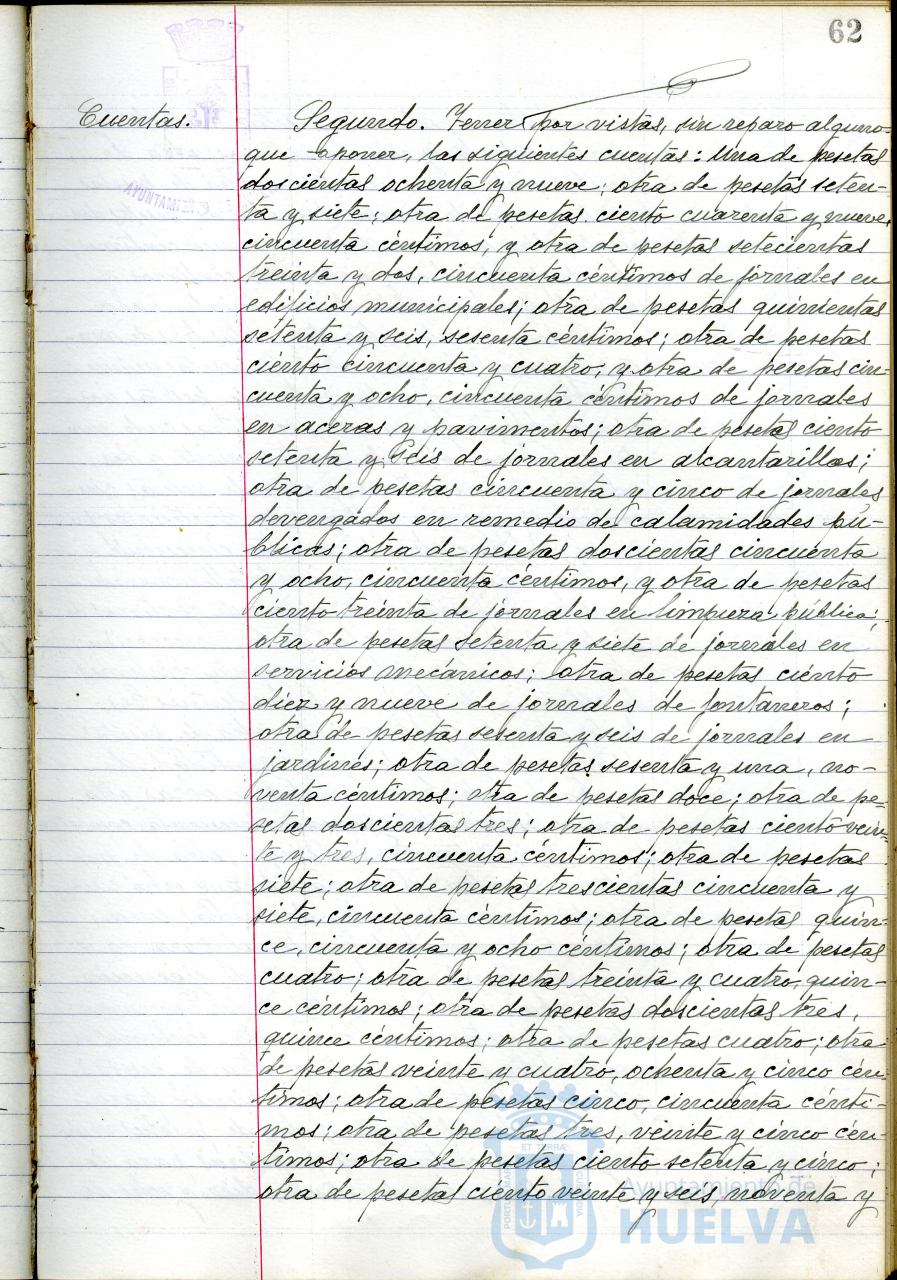 62
Cuentas.
Segundo. Tener por vistas, sin reparo alguno
que oponer, las siguientes cuentas: una de pesetas
doscientas ochenta y nueve; otra de pesetas seten-
ta y siete; otra de pesetas ciento cuarenta y nueve,
cincuenta céntimos; y otra de pesetas setecientas
treinta y dos, cincuenta céntimos de jornales en
edificios municipales; otra de pesetas quinientas
setenta y seis, sesenta céntimos; otra de pesetas
ciento cincuenta y cuatro, y otra de pesetas cin-
cuenta y ocho, cincuenta céntimos de jornales
en aceras y pavimentos; otra de pesetas ciento
setenta y seis de jornales en alcantarillas;
otra de pesetas cincuenta y cinco de jornales
devengados en remedio de calamidades pú-
blicas; otra de pesetas doscientas cincuenta
y ocho, cincuenta céntimos, y otra de pesetas
ciento treinta de jornales en limpieza pública;
otra de pesetas setenta y siete de jornales en
servicios mecánicos; otra de pesetas ciento
diez y nueve de jornales de fontaneros;
otra de pesetas sesenta y seis de jornales en
jardines; otra de pesetas sesenta y una, no-
venta céntimos; otra de pesetas doce; otra de pe-
setas doscientas tres; otra de pesetas ciento vein-
te y tres, cincuenta céntimos; otra de pesetas
siete; otra de pesetas trescientas cincuenta y
siete, cincuenta céntimos; otra de pesetas quin-
ce, cincuenta y ocho céntimos; otra de pesetas
cuatro; otra de pesetas treinta y cuatro, quin-
ce céntimos; otra de pesetas doscientas tres,
quince céntimos; otra de pesetas cuatro; otra
de pesetas veinte y cuatro, ochenta y cinco cén-
timos; otra de pesetas cinco, cincuenta cénti-
mos; otra de pesetas tres, veinte y cinco cén-
timos; otra de pesetas ciento setenta y cinco;
otra de pesetas ciento veinte y seis, noventa y
Ayuntamiento de
HUELVA